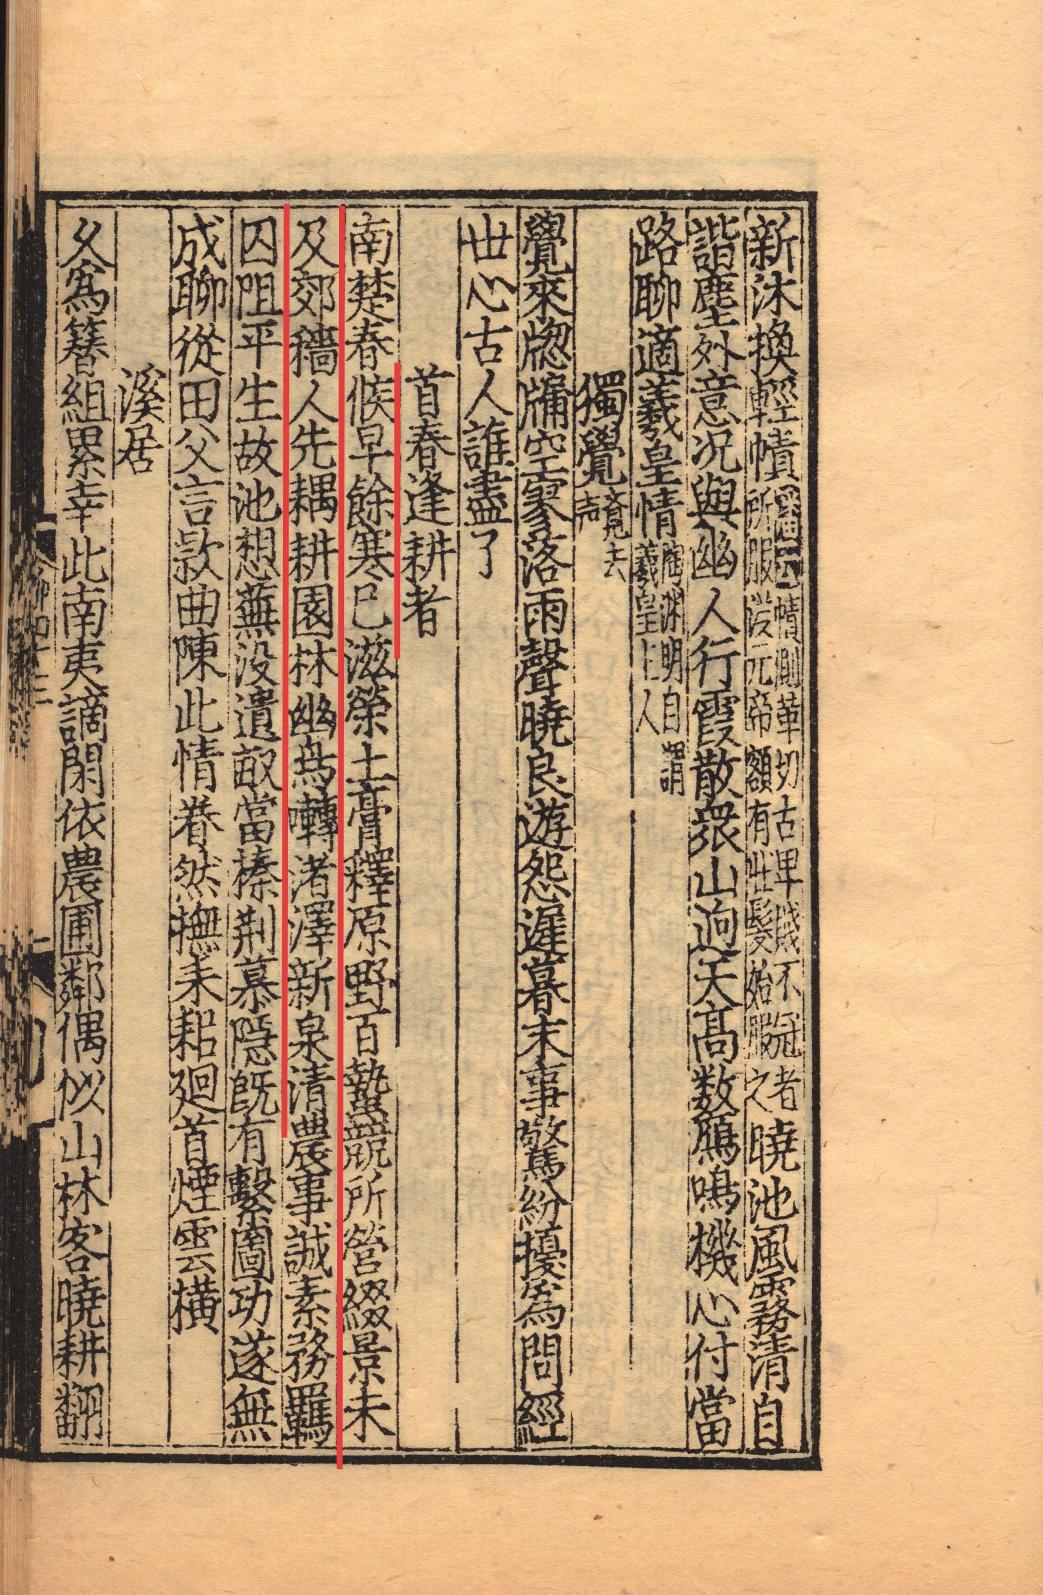 新沐換輕幘所服漢元帝額有壯髮始服之曉池風露清自
諧塵外意況與幽人行霞散衆山迥天高数鴈鳴機心付當
路聊適羲皇情陶淵明自謂羲皇上人
獨覺
覺來窓牖空寥落雨聲曉良遊怨遲暮末事驚紛擾為問經
世心古人誰盡了
首春逢耕者
南楚春候早餘寒已滋榮土膏釋原野百蟄競所營綴景未
及郊穡人先耦耕園林幽鳥囀渚澤新泉清農事誠素務羈
囚阻平生故池想蕪没遺畝當榛荆慕隱既有繫圖功遂無
成聊從田父言款曲陳此情眷然撫耒耜廻首煙雲橫
溪居
乆為簪組累幸此南夷謫閑依農圃鄰偶似山林客曉耕翻